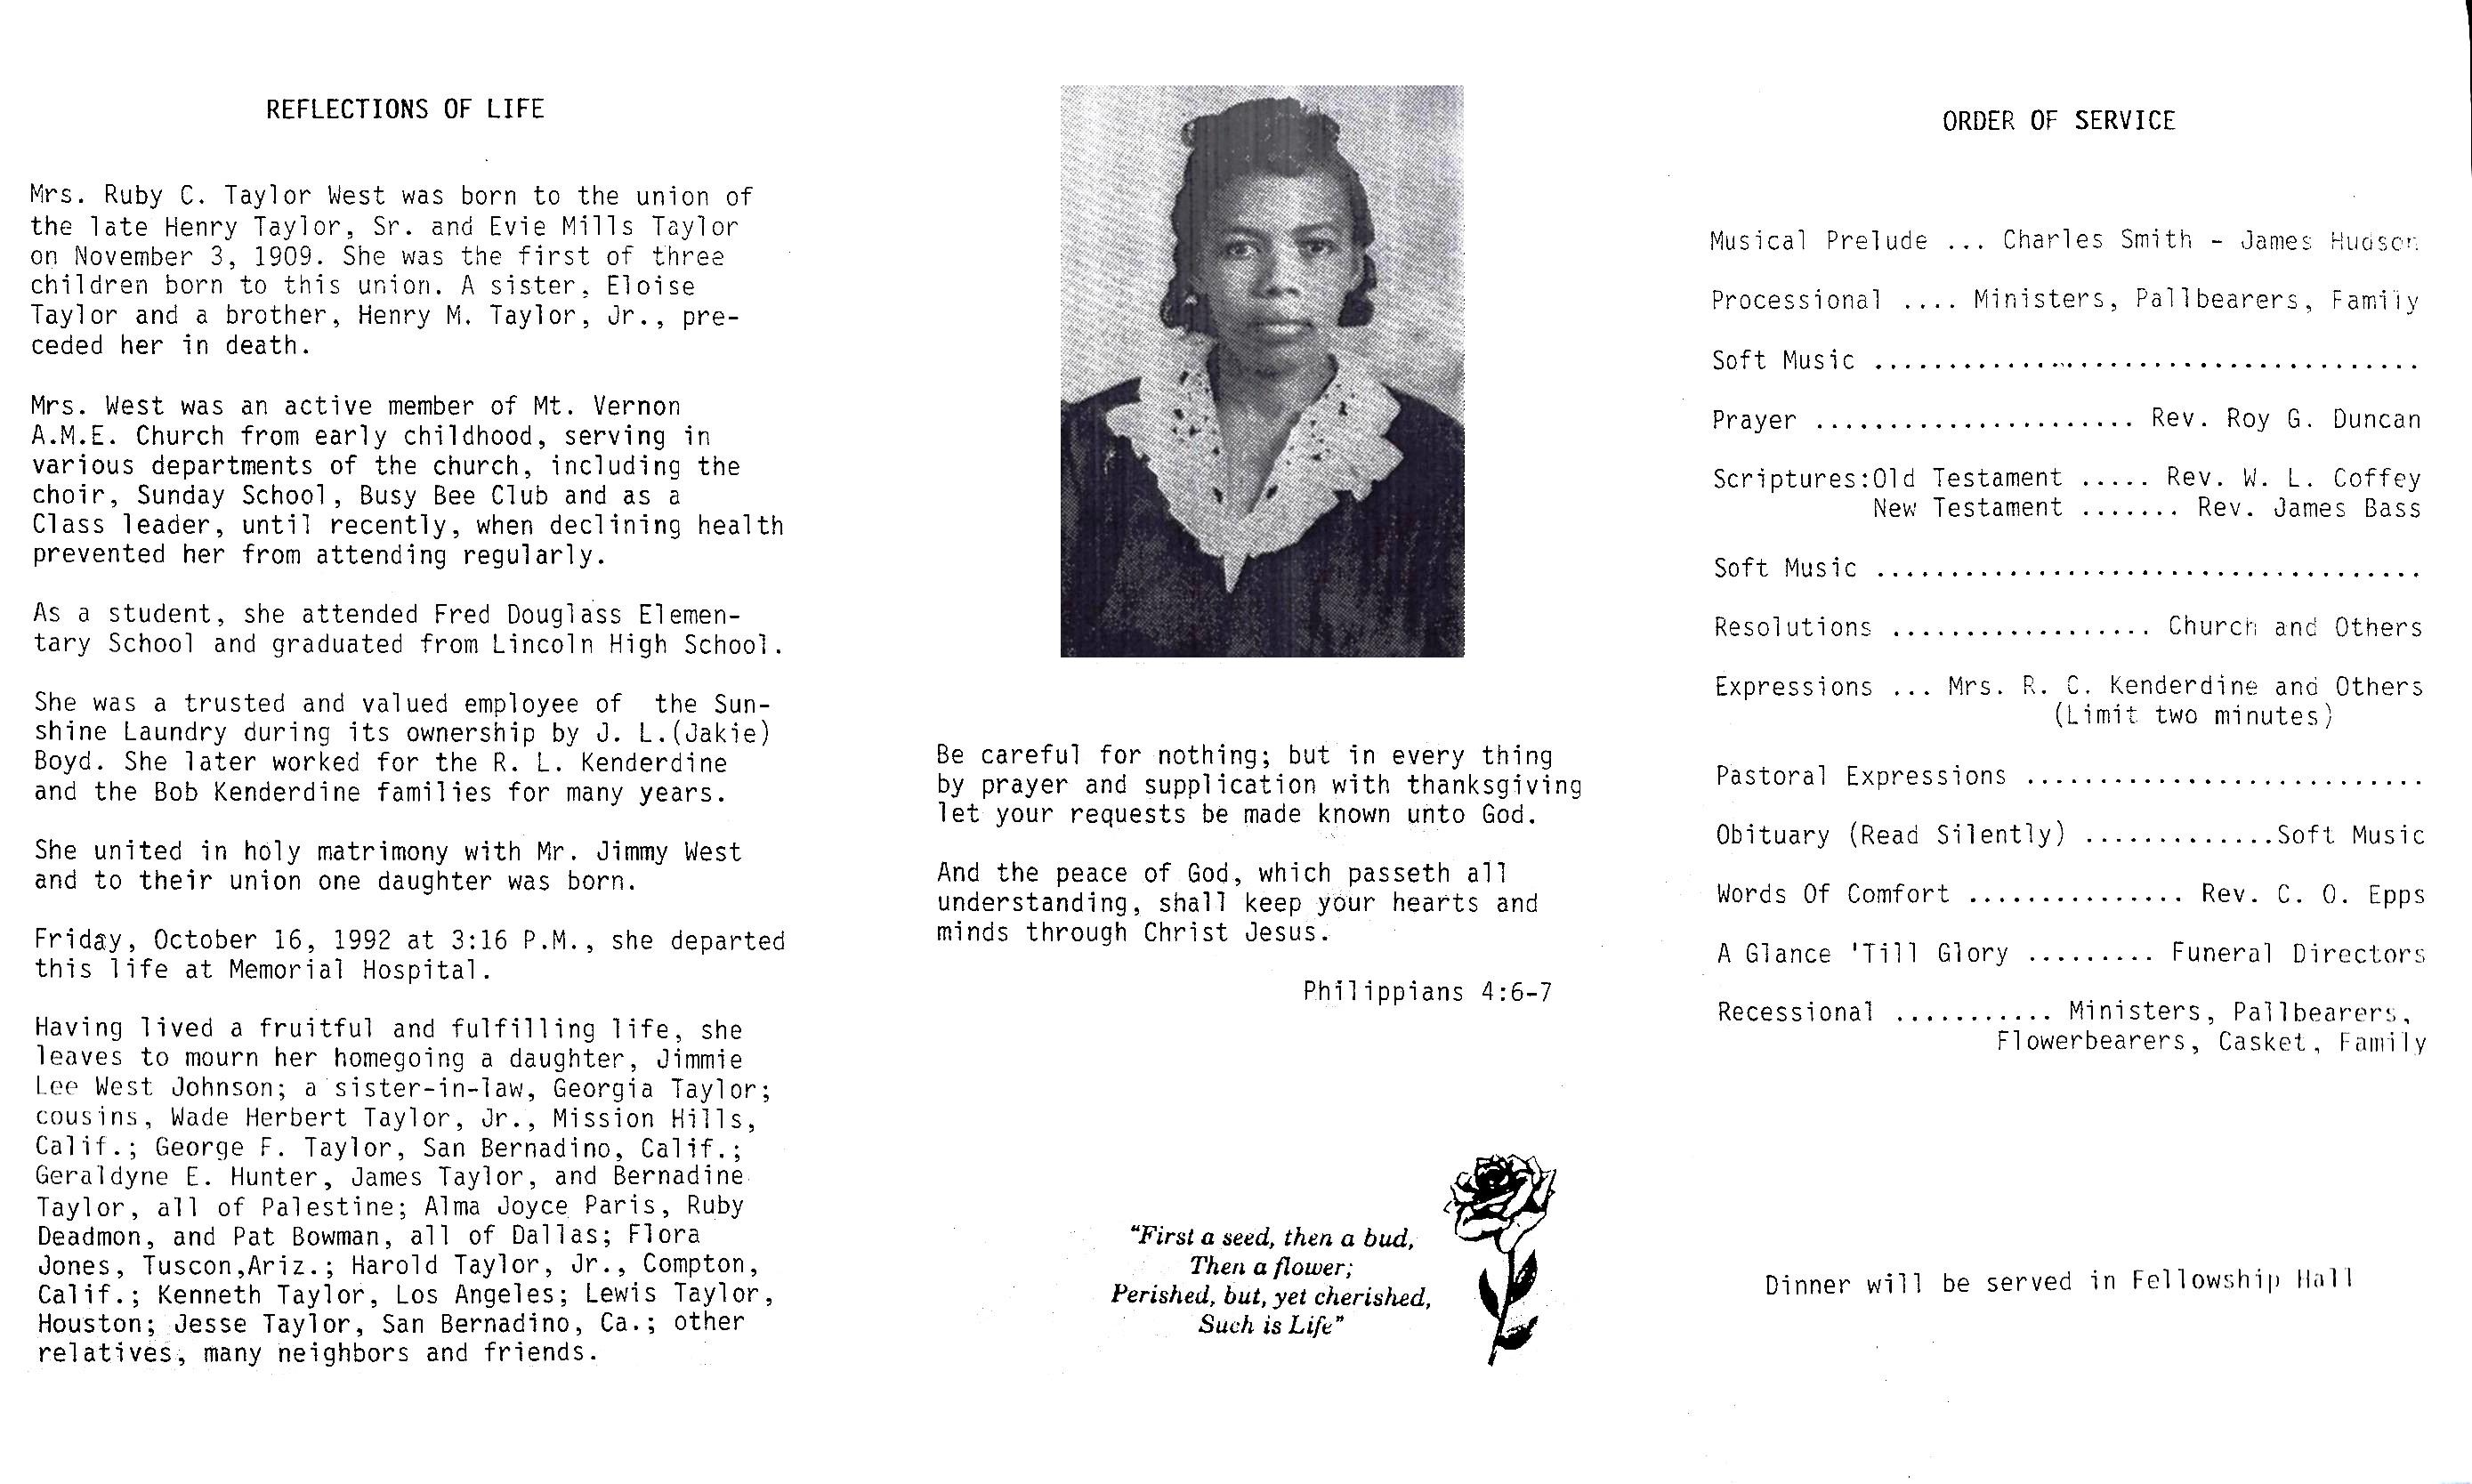 REFLECTIONS OF LIFE
Mrs. Ruby C. Taylor West was born to the union of
the late Henry Taylor, Sr. and Evie Mills Taylor
on November 3, 1909. She was the first of three
children born to this union. A sister, Eloise
Taylor and a brother, Henry M. Taylor, Jr., pre-
ceded her in death.
Mrs. West was an active member of Mt. Vernon
A.M.E. Church from early childhood, serving in
various departments of the church, including the
choir, Sunday School, Busy Bee Club and as a
Class leader, until recently, when declining health
prevented her from attending regularly.
As a student, she attended Fred Douglass Elemen-
tary School and graduated from Lincoln High School.
She was a trusted and valued employee of the Sun-
shine Laundry during its ownership by J. L.(Jakie)
Boyd. She later worked for the R. L. Kenderdine
and the Bob Kenderdine families for many years.
She united in holy matrimony with Mr. Jimmy West
and to their union one daughter was born.
Friday, October 16, 1992 at 3:16 P.M., she departed
this life at Memorial Hospital.
Having lived a fruitful and fulfilling life, she
leaves to mourn her homegoing a daughter, Jimmie
Lee West Johnson; a sister-in-law, Georgia Taylor;
cousins, Wade Herbert Taylor, Jr., Mission Hills,
Calif.; George F. Taylor, San Bernadino, Calif.;
Geraldyne E. Hunter, James Taylor, and Bernadine
Taylor, all of Palestine; Alma Joyce Paris, Ruby
Deadmon, and Pat Bowman, all of Dallas; Flora
Jones, Tuscon,Ariz.; Harold Taylor, Jr., Compton,
Calif.; Kenneth Taylor, Los Angeles; Lewis Taylor,
Houston; Jesse Taylor, San Bernadino, Ca.; other
relatives, many neighbors and friends.
Be careful for nothing; but in every thing
by prayer and supplication with thanksgiving
let your requests be made known unto God.
And the peace of God, which passeth all
understanding, shall keep your hearts and
minds through Christ Jesus.
Philippians 4:6-7
"First a seed, then a bud,
Then a flower;
Perished, but, yet cherished,
Such is Life"
ORDER OF SERVICE
Musical Prelude ... Charles Smith - James Hudson
Processional .... Ministers, Pallbearers, Family
Soft Music .....................................
Prayer ...................... Rev. Roy G. Duncan
Scriptures:Old Testament ..... Rev. W. L. Coffey
New Testament ....... Rev. James Bass
Soft Music .....................................
Resolutions .................. Church and Others
Expressions ... Mrs. R. C. Kenderdine and Others
(Limit two minutes)
Pastoral Expressions ...........................
Obituary (Read Silently) .............Soft Music
Words Of Comfort ............... Rev. C. O. Epps
A Glance 'Till Glory ......... Funeral Directors
Recessional ........... Ministers, Pallbearers,
Flowerbearers, Casket, Family
Dinner will be served in Fellowship Hall